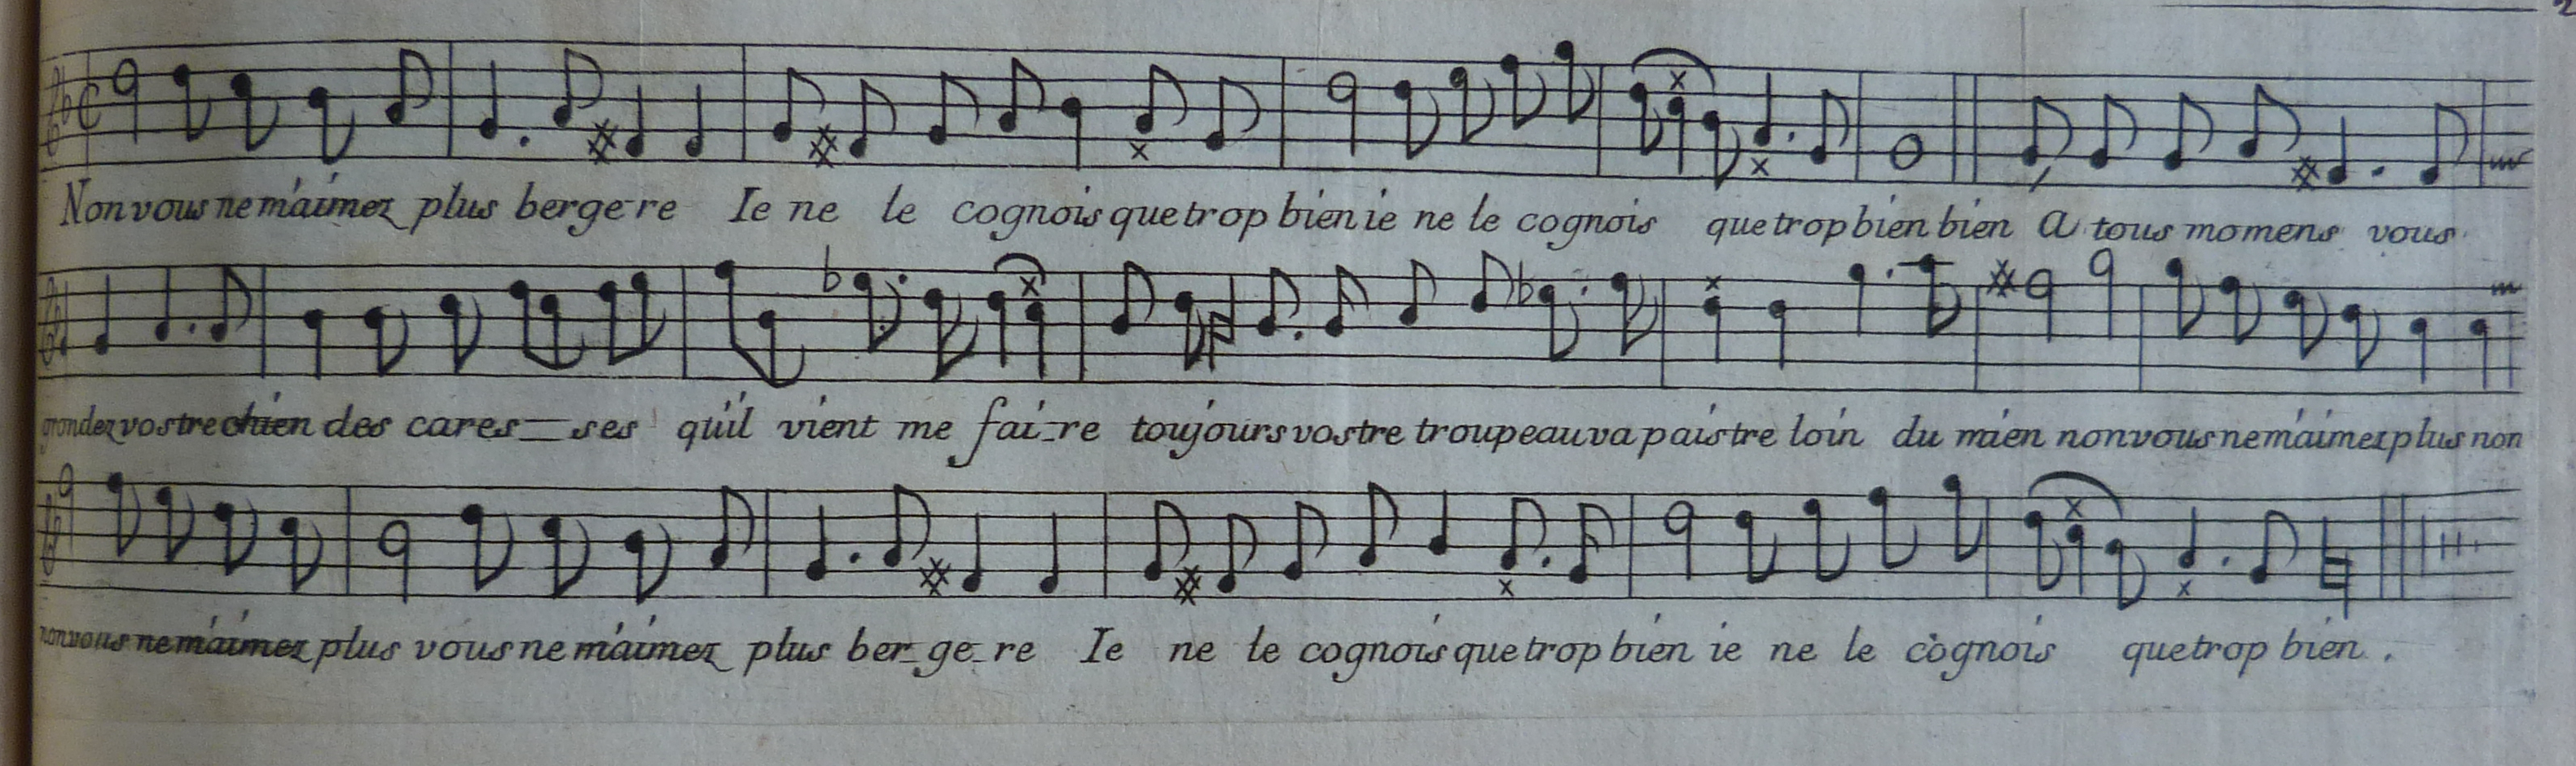 Non vous ne m'aimez plus bergere Ie ne le cognois que trop bien ie ne le cognois que trop bien bien A tous momens vous
grondez vostre chien des cares_ses qu'il vient me fai_re toujours vostre troupeau va paistre loin du mien non vous ne m'aimez plus non
non vous ne m'aimez plus vous ne m'aimez plus ber_ge_re Ie ne le cognois que trop bien ie ne le cognois que trop bien.